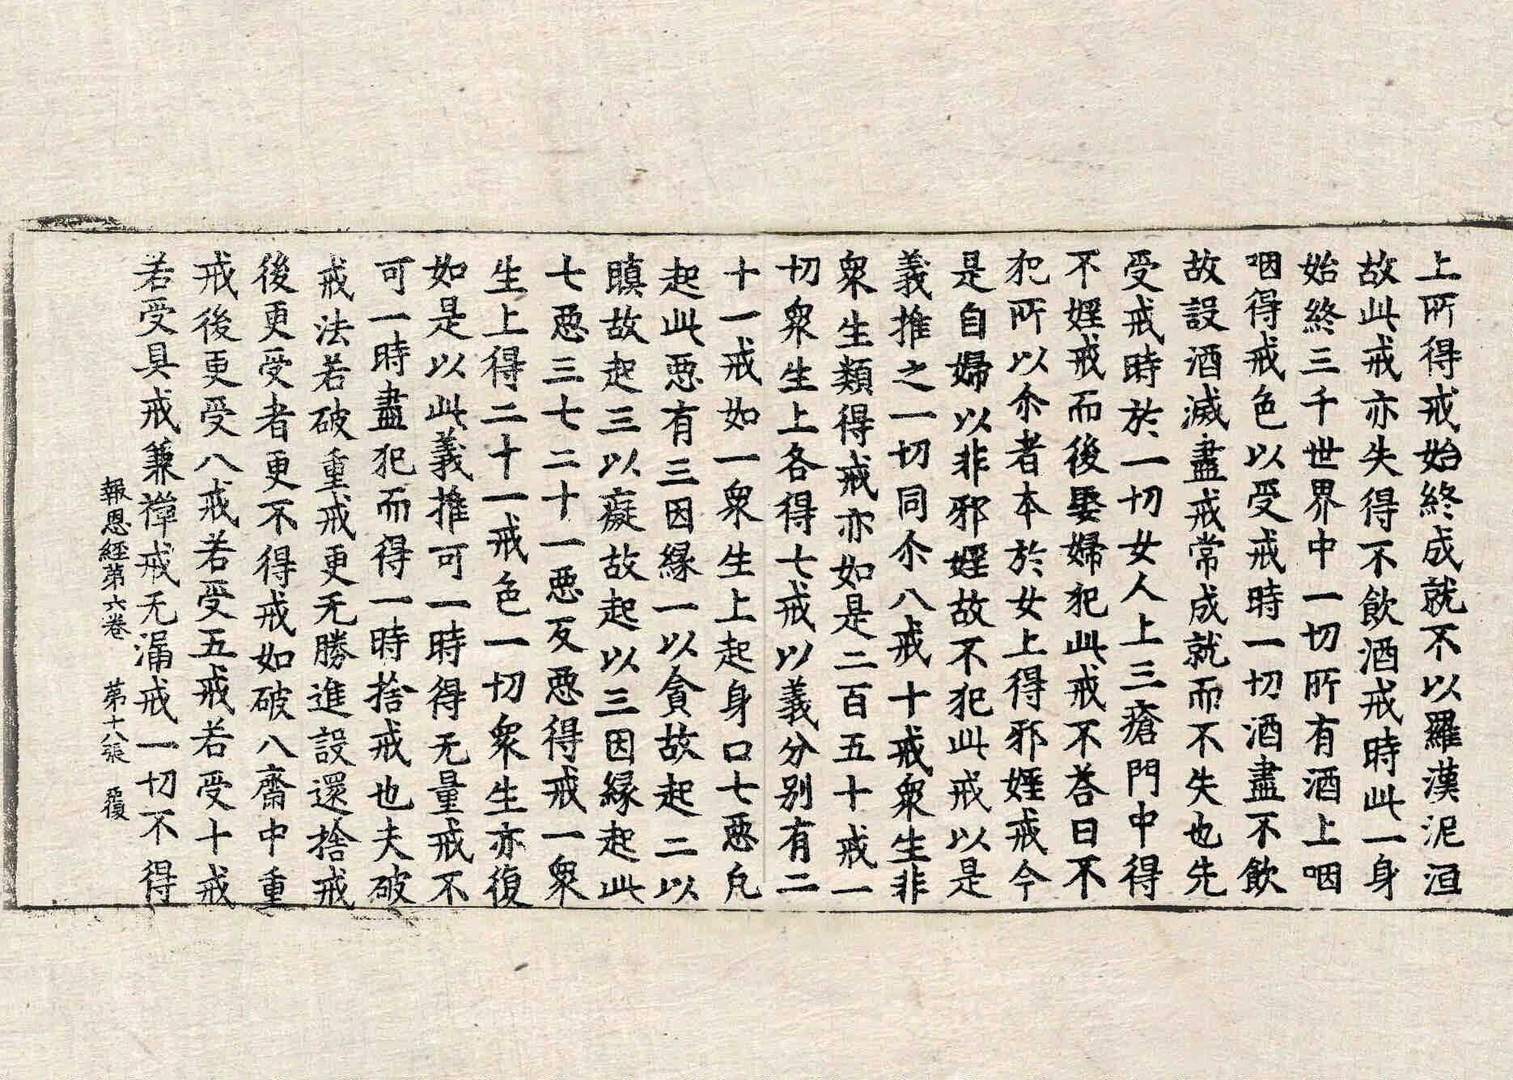 上所得戒始終成就不以羅漢泥洹
故此戒亦失得不飲酒戒時此一身
始終三千世界中一切所有酒上咽
咽得戒色以受戒時一切酒盡不飲
故設酒滅盡戒常成就而不失也先
受戒時於一切女人上三瘡門中得
不婬戒而後娶婦犯此戒不荅曰不
犯所以尒者本於女上得邪婬戒今
是自婦以非邪婬故不犯此戒以是
義推之一切同尒八戒十戒衆生非
衆生類得戒亦如是二百五十戒一
切衆生上各得七戒以義分別有二
十一戒如一衆生上起身口七惡凡
起此惡有三因緣一以貪故起二以
瞋故起三以癡故起以三因緣起此
七惡三七二十一惡反惡得戒一衆
生上得二十一戒色一切衆生亦復
如是以此義推可一時得无量戒不
可一時盡犯而得一時捨戒也夫破
戒法若破重戒更无勝進設還捨戒
後更受者更不得戒如破八齋中重
戒後更受八戒若受五戒若受十戒
若受具戒兼禪戒无漏戒一切不得
報恩經第六卷 第十八張 覆